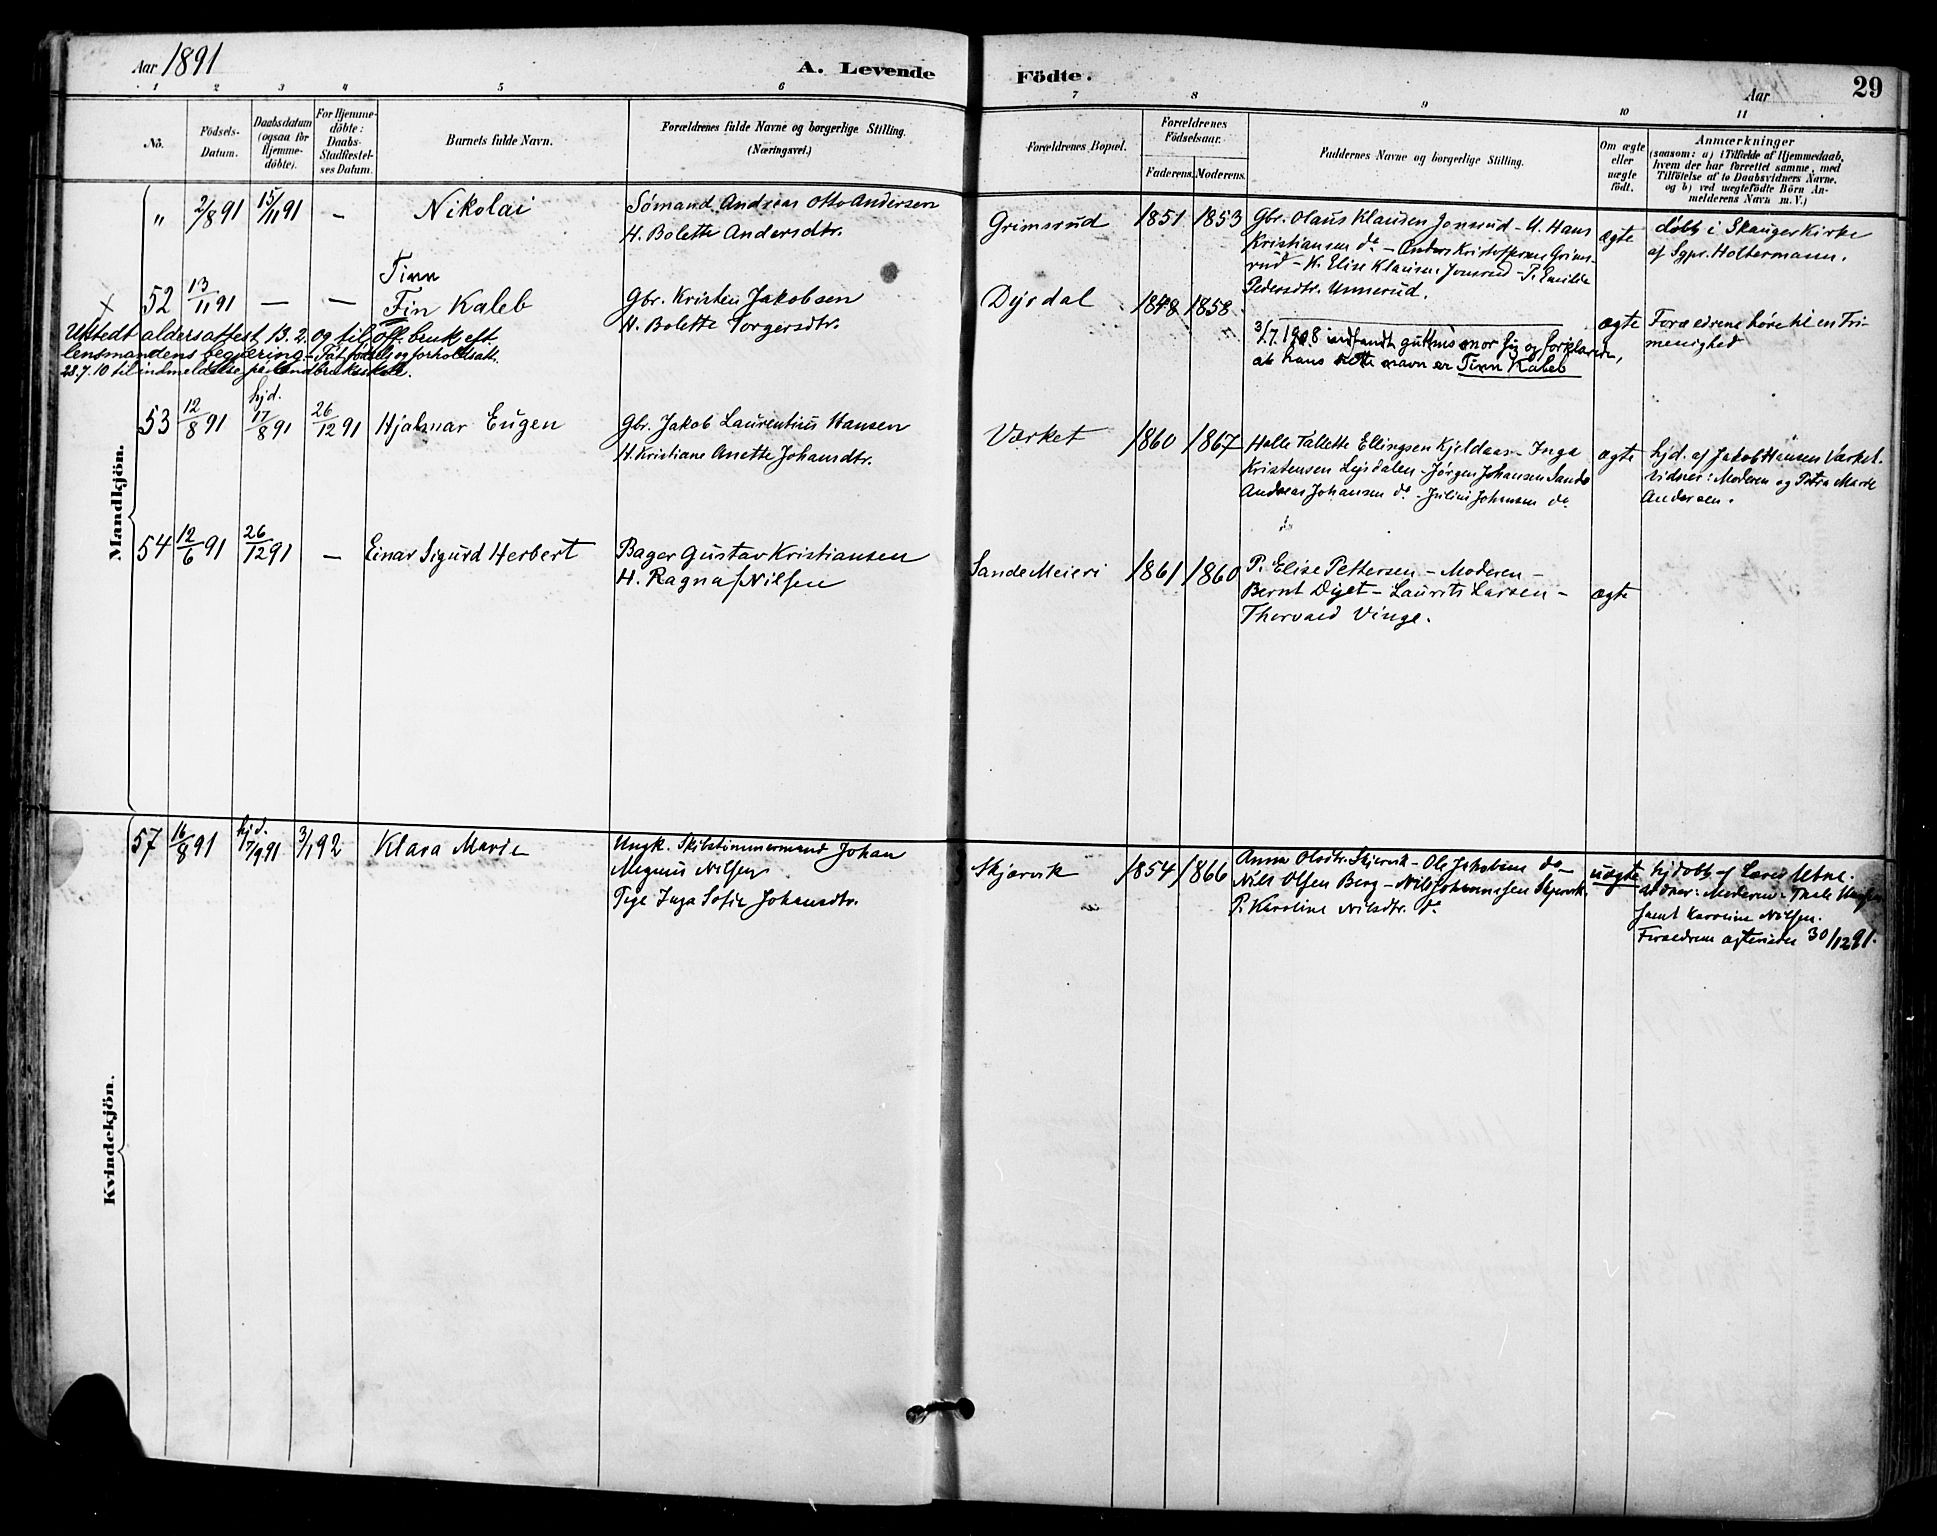 Aar 1891
A. Levende Födte.
Aar
29
1 2 3 4 5 6 7 8 9 10 11
No.
Födsels-
Datum.
Daabsdatum
(ogsaa for
Hjemme-
döbte).
For Hjemme-
döbte:
Daabs-
Stadfæstel-
ses Datum.
Barnets fulde Navn.
Forældrenes fulde Navne og borgerlige Stilling.
(Næringsvei.)
Forældrenes Bopæl.
Forældrenes
Födselsaar.
Faderens. Moderens.
Faddernes Navne og borgerlige Stilling.
Om ægte
eller
uægte
födt.
Anmærkninger
(saasom: a) i Tilfælde af Hjemmedaab,
hvem der har forrettet samme, med
Tilföielse af to Daabsvidners Navne,
og b) ved uægtefödte Börn An-
melderens Navn m. V.)
Mandkjön.
" 2/8 91 15/11 91 — Nikolai
Sømand Andreas Otto Andersen
H. Bolette Andersdtr.
Grimsrud 1851 1853
Gbr. Olaus Klausen Jonsrud - U. Hans
Kristiansen do - Anders Kristoffersen Grims-
rud - K. Elise Klausen Jonsrud - P.
Pedersdtr. Unnerud.
ægte
døbt i Skauger Kirke
af Sgpr. Holtermann.
× 52 13/11 91 — —
Tinn
Fin Kaleb
Gbr. Kristen Jakobsen
H. Bolette Torgersdtr.
Dysdal 1848 1858
ægte
Forældrene høre til en Fri-
menighed
Utstedt aldersattest 13.2. og til off. bruk eft.
lensmandens begjæring
28.7.10 til indmeldelse
3/7 1908 indfandt guttens mor sig og forklarede,
at hans rette navn er Tinn Kaleb
53 12/8 91 hjd. 17/8 91 26/12 91 Hjalmar Eugen
Gbr. Jakob Laurentius Hansen
H. Kristiane Anette Johansdtr.
Værket 1860 1867
Helle Tallette Ellingsen Kjeldaas - Inga
Kristensen - Jørgen Johansen Sande
Andreas Johansen do - Julius Johansen do
ægte
hjd. af Jakob Hansen Værket.
Vidner: Moderen og Petra Marie
Andersen.
54 12/6 91 26/12 91 — Einar Sigurd Herbert
Bager Gustav Kristiansen
H. Ragna f. Nilsen
Sande Meieri 1861 1860
P. Elise Pettersen - Moderen -
Bernt - Laurits Larsen -
Thorvald Vinge.
ægte
Kvindekjön.
57 16/8 91 hjd. 17/9 91 3/1 92 Klara Marie
Ungk. Skibstømmermand Johan
Magnus Nilsen
Pige Inga Sofie Johansdtr.
Skjærvik 1854 1866
Anna Olsdtr. Skjærvik - Ole Jakobsen do -
Nils Olsen Berg - Nils Johannesen Skjærvik.
P. Karoline Nilsdtr. do
uægte
hjdøbt af
Vidner: Moderen - Thale
samt Karoline Nilsen.
Forældrene ægteviede 30/12 91.